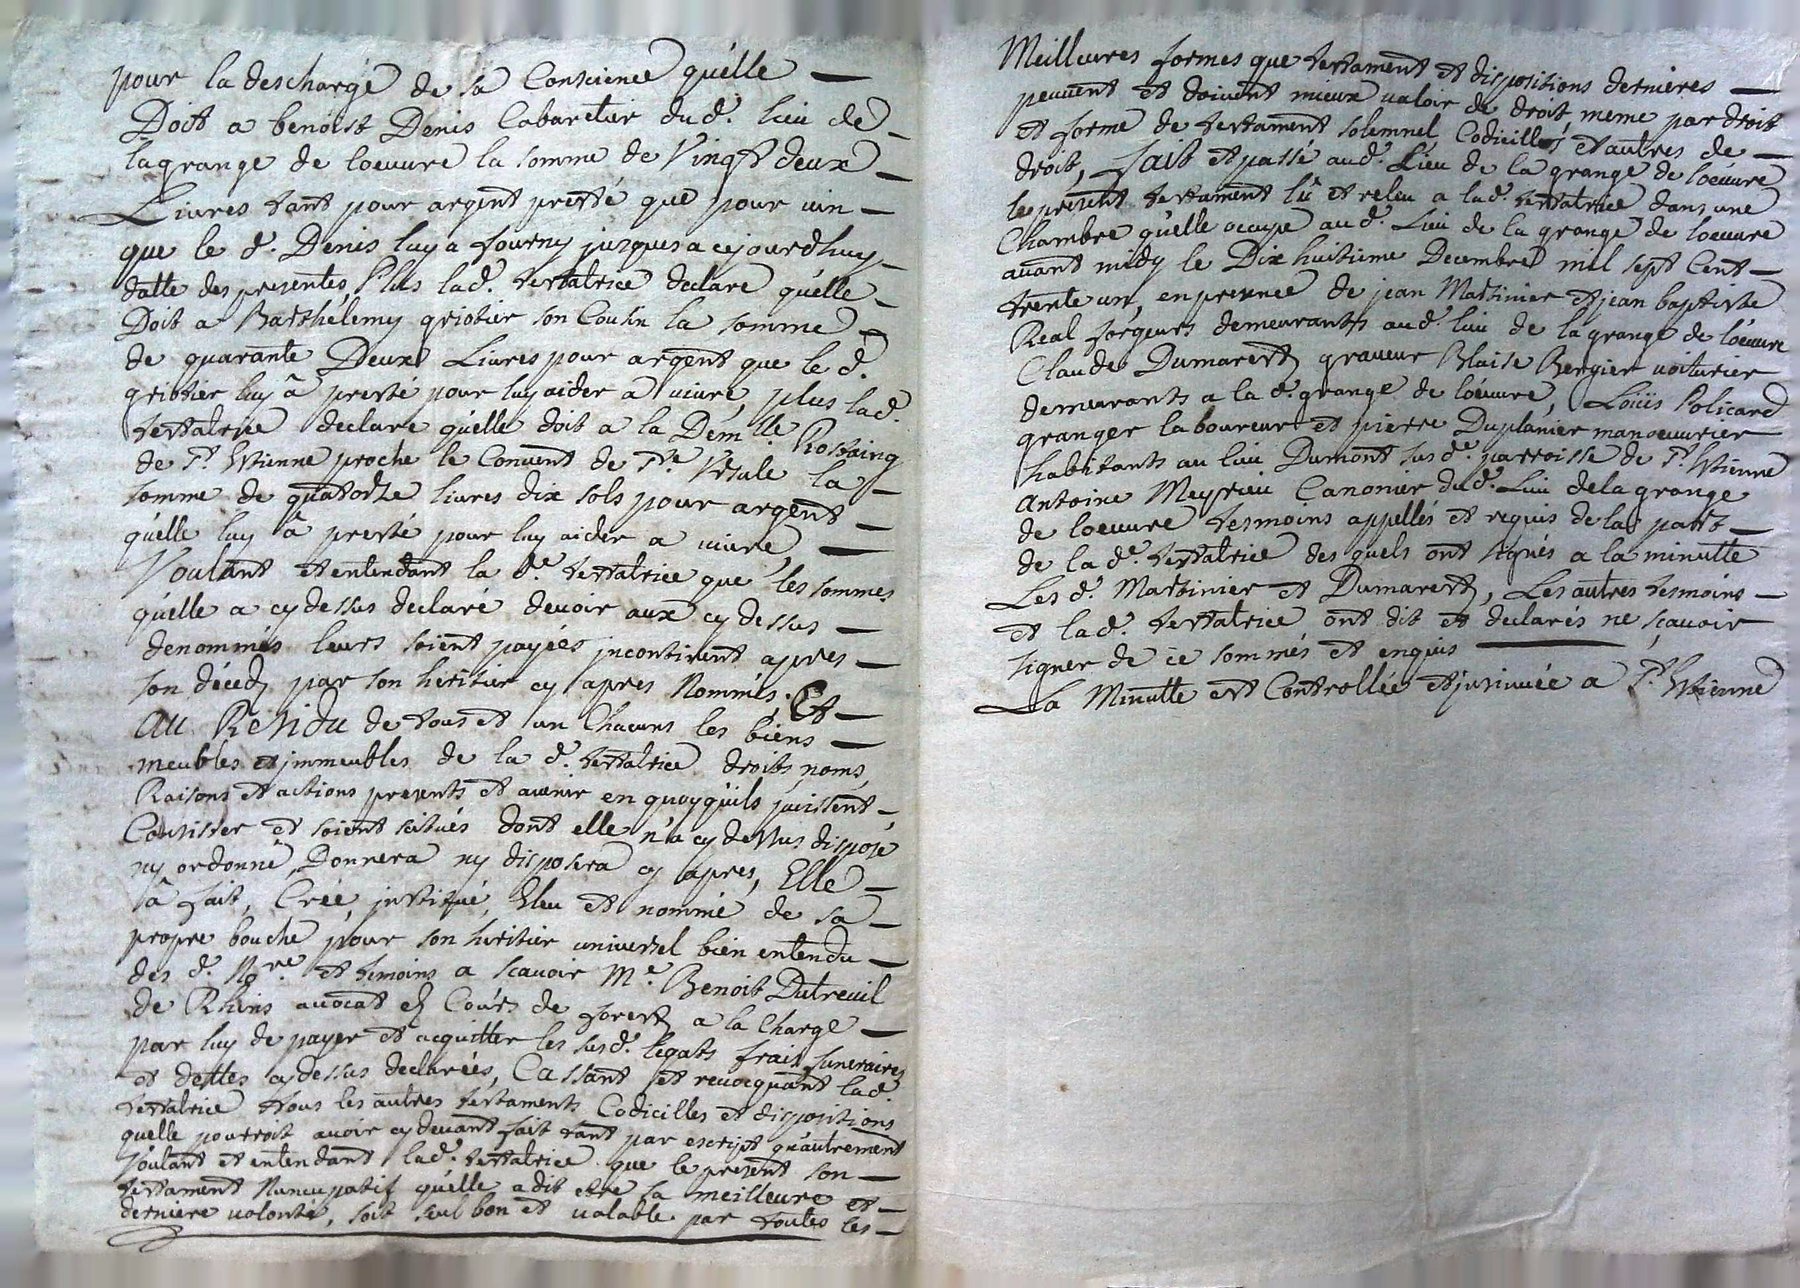 pour la descharge de sa Conscience qu'elle
Doit a benoist Denis Cabaretier dud. lieu de
lagrange de loeuure la somme de Vingt deux
Liures tant pour argent presté que pour uin
que le d. Denis luy a fourny jusques a cejourdhuy
datte des presentes Plus lad. testatrice declare qu'elle
Doit a Barthélemy griotier son Cousin la somme
de quarante Deux Liures pour argent que le d.
griotier luy â presté pour luy aider a uiure, plus lad.
testatrice declare qu'elle doit a la Demlle Rostaing
de St. Etienne proche le Conuent de Ste Vrsule la
somme de quatorze liures dix sols pour argent
qu'elle luy â presté pour luy aider a uiure,
Voulant et entendant la de. testatrice que les sommes
qu'elle a cy dessus declaré deuoir aux cy dessus
denommés leurs soient payées jncontinent apres
son décedz par son heritier cy apres Nommés. Et
au Residu de tous et un Chacuns les biens
meubles et jmmeubles de la d. testatrice droits, noms,
Raisons et actions presents et auenir en quoyqu'ils puissent
Consister et soient scitués dont elle n'a cy dessus disposé
ny ordonné, Donnera ny disposera cy apres, Elle
â fait, Créé, jnstitué, Eleu et nommé de sa
propre bouche pour son heritier uniuersel bien entendu
des d. Nore. et temoins a scauoir Me. Benoit Dutreuil
de Rhins auocat ez Cours de forestz a la Charge
par luy de payer et acquitter les susd. legats frais funeraires
et dettes cy dessus declarées, Cassant et reuocquant lad.
testatrice tous les autres testaments Codicilles et dispositions
quelle pourroit auoir cy deuant fait tant par escript qu'autrement
Voulant et entendant lad. testatrice que le present son
testament Nuncupatif qu'elle a dit etre sa meilleure et
derniere uolonté, soit seul bon et ualable par toutes les
Meilleures formes que testament et dispositions dernieres
peuuent et doiuent mieux ualoir de droit meme par droit
et forme de testament solemnel Codicilles et autres de
droit, fait et passé aud. Lieu de la grange de loeuure
le present testament lû et releu a lad. testatrice dans une
Chambre qu'elle occupe aud. Lieu de la grange de loeuure
auant midy le Dix huitieme Decembre mil sept Cent
trente un, en presence de jean Martinier et jean baptiste
Real forgeurs demeurants aud. lieu de la grange de loeuure
Claude Dumarestz graueur Blaise Bergier uoiturier
demeurants a la d. grange de loeuure, Loüis Policard
granger laboureur et pierre Duplanier manoeuurier
habitants au lieu Dumont susde. parroisse de St. Etienne
antoine Meyrieu Canonier dud. Lieu dela grange
de loeuure tesmoins appellés et requis de la part
de la de. testatrice des quels ont signés a la minutte
Les d. Martinier et Dumarestz, Les autres tesmoins
et lad. testatrice ont dit et declarés ne scauoir
signer de ce sommés et enquis
La Minutte est Controllée et jnsinuée a St. Etienne